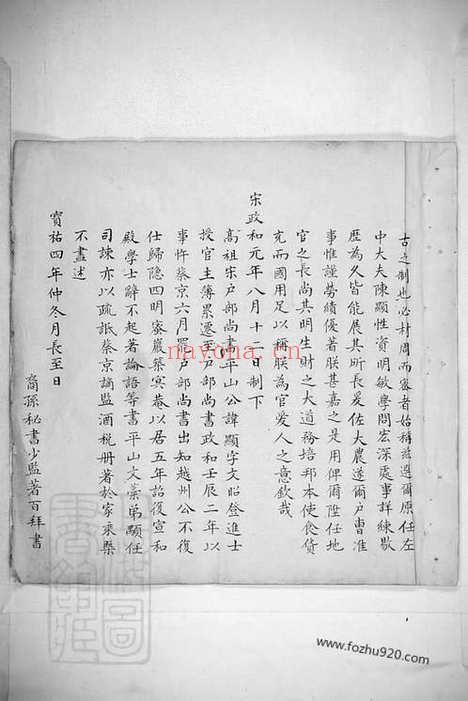 古之制也必材周而審者始稱茲選爾原任左
中大夫陳顯性資明敏學問宏深處事詳練歇
歷為久皆能展其所長爰佐大農遷爾戶曹准
事惟謹勞績優著朕甚嘉之是用俾爾陞任地
官之長尚其明生財之大道務培邦本使食貨
充而國用足以稱朕為官爱人之意欽哉
宋政和元年八月十二日制下
高祖宋戶部尚書平山公諱顯字文昭登進士
授官主簿累遷至戶部尚書政和壬辰二年以
事忤蔡京六月罷戶部尚書出知越州公不復
仕歸隱四明蜜巖築寞菴以居五年詔復宣和
殿學士辭不起著論語等書平山文藁弟顯任
司諫亦以疏詆蔡京謫監酒税册著於家乘槩
不盡述
寶祐四年仲冬月長至日
裔孫秘書少監著百拜書
nayona.cn
www.fozhu920.com